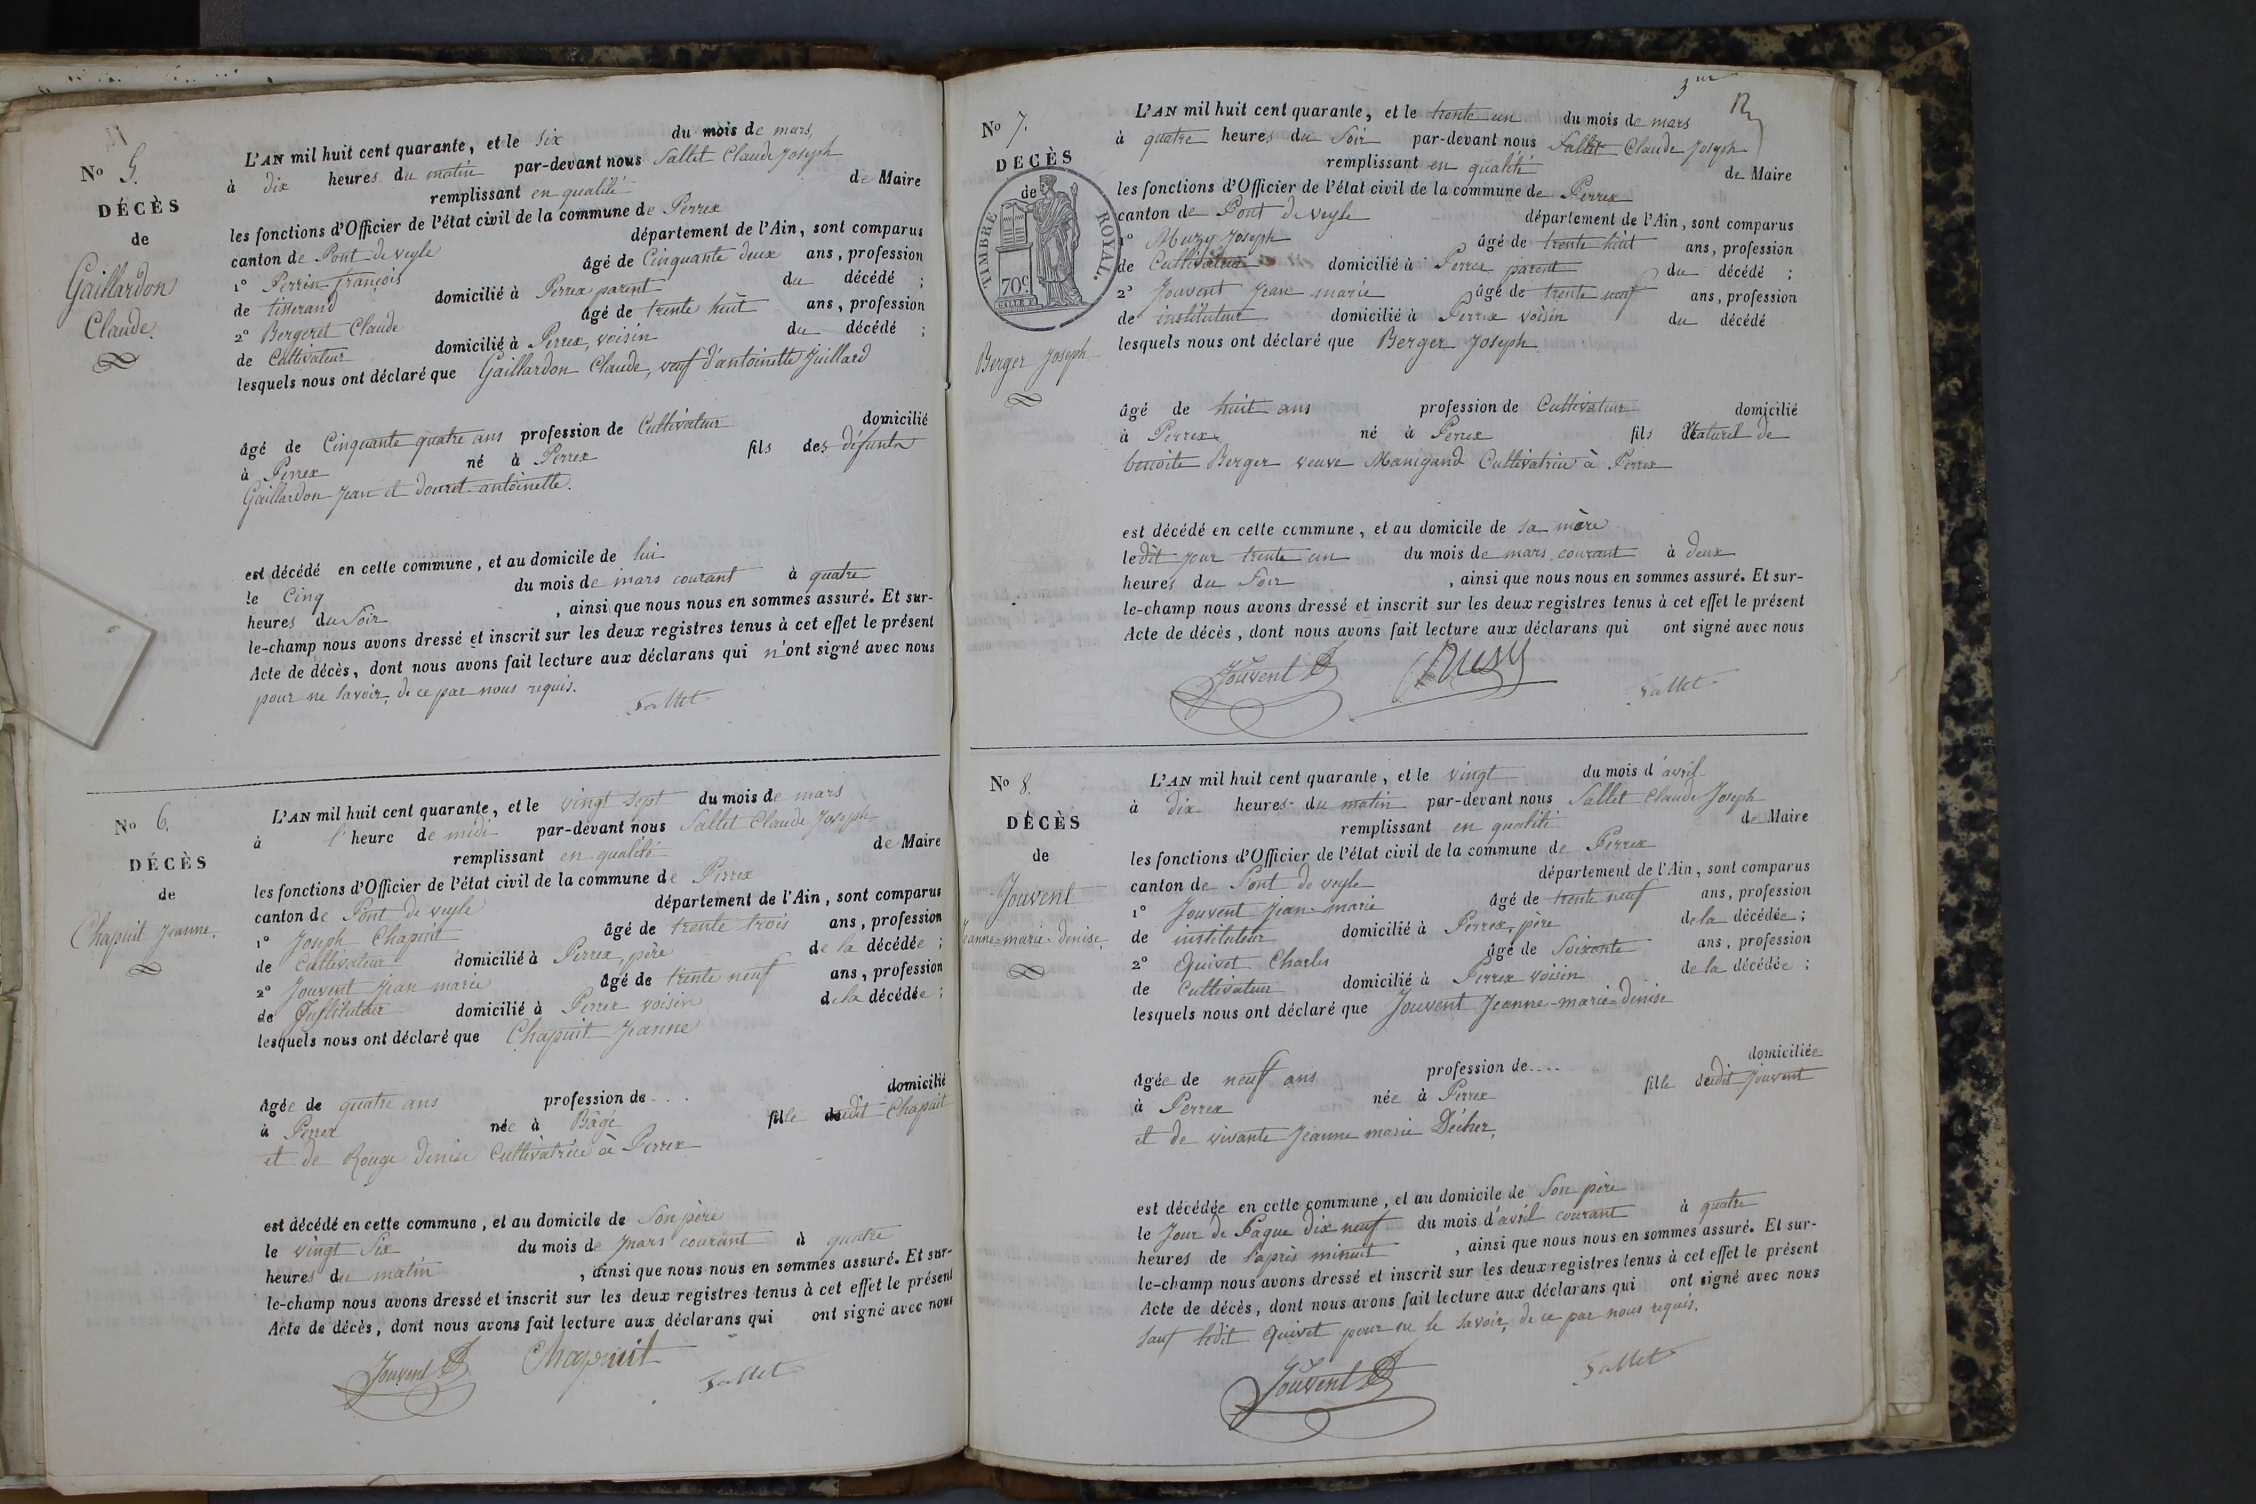 No 5.
DÉCÈS
de
Gaillardon
Claude.
L'AN mil huit cent quarante, et le six du mois de mars,
à dix heures du matin par-devant nous Sallet Claude Joseph
remplissant en qualité de Maire
les fonctions d'Officier de l'état civil de la commune de Perrex
canton de Pont de veyle département de l'Ain, sont comparus
1° Perrin françois âgé de Cinquante deux ans, profession
de tisserand domicilié à Perrex parent du décédé ;
2° Bergeret Claude âgé de trente huit ans, profession
de Cultivateur domicilié à Perrex, voisin du décédé ;
lesquels nous ont déclaré que Gaillardon Claude, veuf d'antoinette Juillard
âgé de Cinquante quatre ans profession de Cultivateur domicilié
à Perrex né à Perrex fils des défunts
Gaillardon Jean et douret antoinette.
est décédé en cette commune, et au domicile de lui
le Cinq du mois de mars courant à quatre
heures du Soir , ainsi que nous nous en sommes assuré. Et sur-
le-champ nous avons dressé et inscrit sur les deux registres tenus à cet effet le présent
Acte de décès, dont nous avons fait lecture aux déclarans qui n'ont signé avec nous
pour ne savoir, de ce par nous requis.
Sallet
No 6.
DÉCÈS
de
Chapuit Jeanne.
L'AN mil huit cent quarante, et le vingt sept du mois de mars
à l'heure de midi par-devant nous Sallet Claude Joseph
remplissant en qualité de Maire
les fonctions d'Officier de l'état civil de la commune de Perrex
canton de Pont de veyle département de l'Ain, sont comparus
1° Joseph Chapuit âgé de trente trois ans, profession
de Cultivateur domicilié à Perrex, père de la décédée ;
2° Jouvent Jean marie âgé de trente neuf ans, profession
de Instituteur domicilié à Perrex voisin de la décédée ;
lesquels nous ont déclaré que Chapuit Jeanne
âgée de quatre ans profession de .... domicilié
à Perrex née à Bâgé fille dudit Chapuit
et de Rouge denise Cultivatrice à Perrex
est décédé en cette commune, et au domicile de Son père
le vingt Six du mois de mars courant à quatre
heures du matin , ainsi que nous nous en sommes assuré. Et sur-
le-champ nous avons dressé et inscrit sur les deux registres tenus à cet effet le présent
Acte de décès, dont nous avons fait lecture aux déclarans qui ont signé avec nous
Jouvent Chapuit Sallet
No 7.
DECÈS
de
TIMBRE ROYAL.
70c
Berger Joseph
L'AN mil huit cent quarante, et le trente un du mois de mars
à quatre heures du Soir par-devant nous Sallet Claude Joseph
remplissant en qualité de Maire
les fonctions d'Officier de l'état civil de la commune de Perrex
canton de Pont de veyle département de l'Ain, sont comparus
1° Muzy Joseph âgé de trente huit ans, profession
de Cultivateur domicilié à Perrex parent du décédé ;
2° Jouvent Jean marie âgé de trente neuf ans, profession
de instituteur domicilié à Perrex voisin du décédé
lesquels nous ont déclaré que Berger Joseph
âgé de huit ans profession de Cultivateur domicilié
à Perrex né à Perrex fils Naturel de
benoite Berger veuve Manigand Cultivatrice à Perrex
est décédé en cette commune, et au domicile de sa mère
ledit jour trente un du mois de mars courant à deux
heures du Soir , ainsi que nous nous en sommes assuré. Et sur-
le-champ nous avons dressé et inscrit sur les deux registres tenus à cet effet le présent
Acte de décès, dont nous avons fait lecture aux déclarans qui ont signé avec nous
Jouvent Muzy Sallet
No 8.
DÉCÈS
de
Jouvent
Jeanne-marie-denise.
L'AN mil huit cent quarante, et le vingt du mois d'avril
à dix heures du matin par-devant nous Sallet Claude Joseph
remplissant en qualité de Maire
les fonctions d'Officier de l'état civil de la commune de Perrex
canton de Pont de veyle département de l'Ain, sont comparus
1° Jouvent Jean-marie âgé de trente neuf ans, profession
de instituteur domicilié à Perrex, père de la décédée ;
2° Quivet Charles âgé de Soixante ans, profession
de Cultivateur domicilié à Perrex voisin de la décédée ;
lesquels nous ont déclaré que Jouvent Jeanne-marie-denise
âgée de neuf ans profession de .... domiciliée
à Perrex née à Perrex fille dudit Jouvent
et de vivante Jeanne marie Décher.
est décédée en cette commune, et au domicile de Son père
le Jour de Paque dix neuf du mois d'avril courant à quatre
heures de l'après minuit , ainsi que nous nous en sommes assuré. Et sur-
le-champ nous avons dressé et inscrit sur les deux registres tenus à cet effet le présent
Acte de décès, dont nous avons fait lecture aux déclarans qui ont signé avec nous
sauf ledit Quivet pour ne le savoir, de ce par nous requis.
Jouvent Sallet